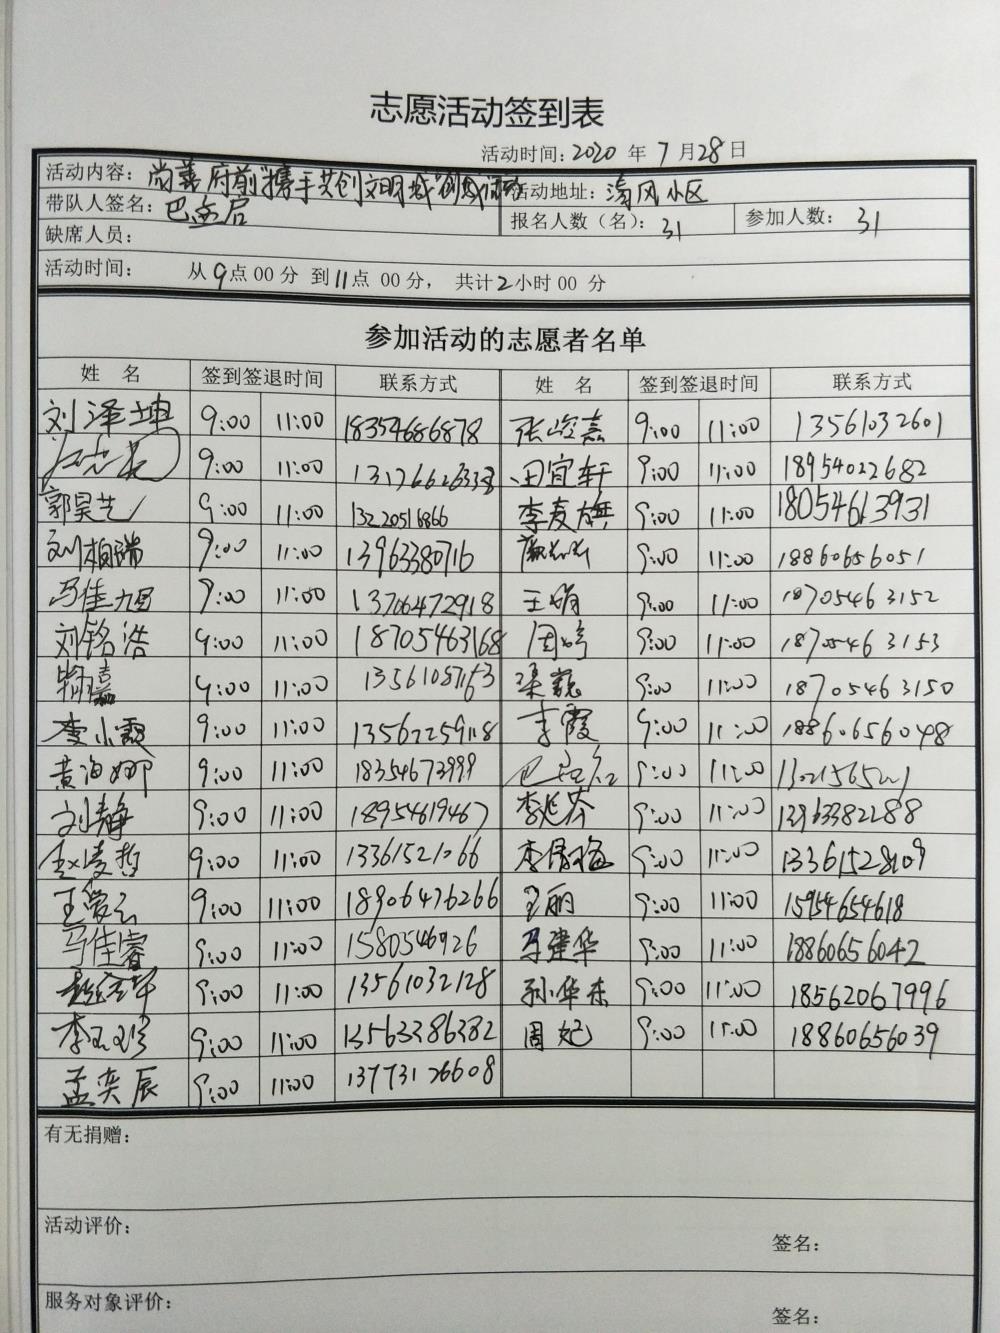 志愿活动签到表
活动时间：2020 年 7 月 28 日
活动内容：尚善府前"携手共创文明城" 活动地址：清风小区
带队人签名：巴 报名人数（名）：31 参加人数：31
缺席人员：
活动时间： 从 9 点 00 分 到 11 点 00 分， 共计 2 小时 00 分
参加活动的志愿者名单
姓 名 签到签退时间 联系方式 姓 名 签到签退时间 联系方式
刘泽坤 9:00 11:00 18354686878 张峻嘉 9:00 11:00 13561032601
9:00 11:00 田宜轩 9:00 11:00 18954022682
郭昊艺 9:00 11:00 李麦旗 9:00 11:00 18054613931
刘相瑞 9:00 11:00 13963380716 9:00 11:00 18860656051
马佳 9:00 11:00 13706472918 王娟 9:00 11:00 18705463152
刘铭浩 9:00 11:00 18705463168 周婷 9:00 11:00 18705463153
9:00 11:00 13561057163 梁巍 9:00 11:00 18705463150
李小霞 9:00 11:00 13562259118 李霞 9:00 11:00 18860656048
黄海娜 9:00 11:00 18354673999 巴 9:00 11:00
刘静 9:00 11:00 18954619467 李延芬 9:00 11:00 13963382288
赵凌哲 9:00 11:00 13361521266 9:00 11:00 13361528109
王爱云 9:00 11:00 18906476266 王丽 9:00 11:00 15954654618
马佳睿 9:00 11:00 1580546926 马建华 9:00 11:00 18860656042
9:00 11:00 13561032128 孙华东 9:00 11:00 18562067996
李玉珍 9:00 11:00 13563386382 周妃 9:00 11:00 18860656039
孟奕辰 9:00 11:00 13773126608
有无捐赠：
活动评价：
签名：
服务对象评价：
签名：